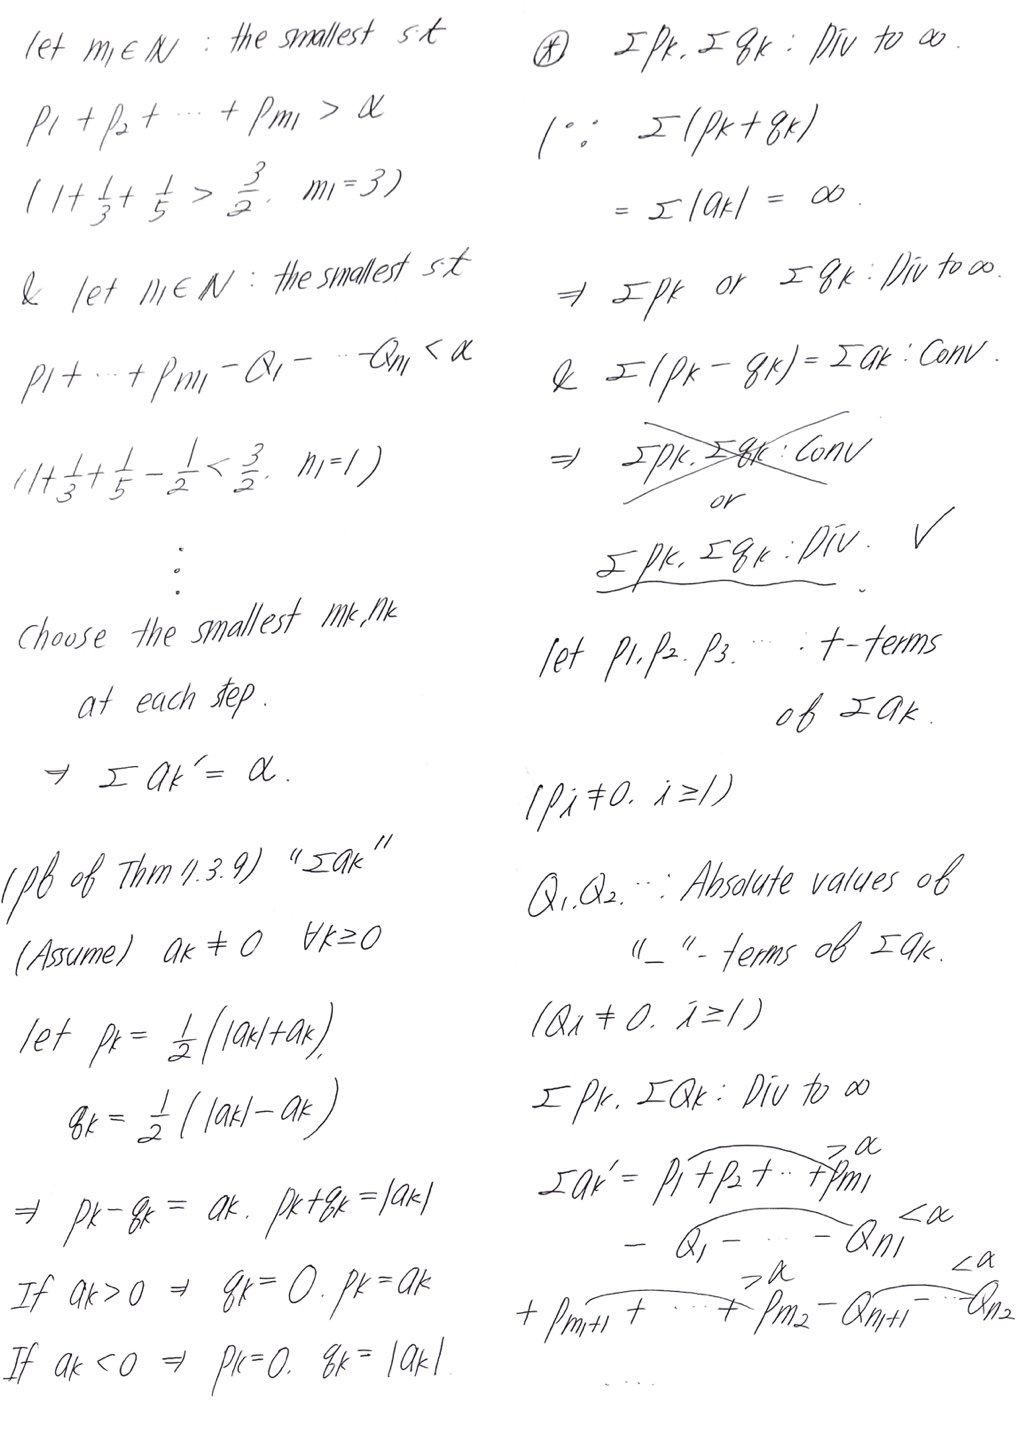 let m₁∈ℕ : the smallest s.t
p₁ + p₂ + ··· + pm₁ > α
(1+1/3+1/5 > 3/2. m₁=3)
& let n₁∈ℕ : the smallest s.t
p₁+ ··· + pm₁ - Q₁ - ··· -Qn₁ < α
(1+1/3+1/5 - 1/2 < 3/2. n₁=1)
⋮
choose the smallest mk, nk
at each step.
⇒ Σ ak′ = α.
(pf of Thm 7.3.9) "Σak"
(Assume) ak ≠ 0 ∀k≥0
let pk = 1/2 (|ak|+ak),
qk = 1/2 (|ak|-ak)
⇒ pk-qk = ak. pk+qk = |ak|
If ak>0 ⇒ qk=0. pk=ak
If ak<0 ⇒ pk=0. qk=|ak|.
⊛ Σpk. Σqk : Div to ∞.
(∵ Σ(pk+qk)
= Σ|ak| = ∞.
⇒ Σpk or Σqk : Div to ∞.
& Σ(pk-qk) = Σak : Conv.
⇒ Σpk. Σqk : Conv
or
Σpk. Σqk : Div. ✓
let p₁. p₂. p₃. ··· : +-terms
of Σak.
(pi≠0. i≥1)
Q₁. Q₂. ··· : Absolute values of
"-"-terms of Σak.
(Qi≠0. i≥1)
Σpk. ΣQk : Div to ∞
Σak′ = p₁+p₂+ ·· +pm₁ >α
- Q₁ - ··· - Qn₁ <α
+ pm₁+1 + ··· + pm₂ >α - Qn₁+1 - ··· -Qn₂ <α
····